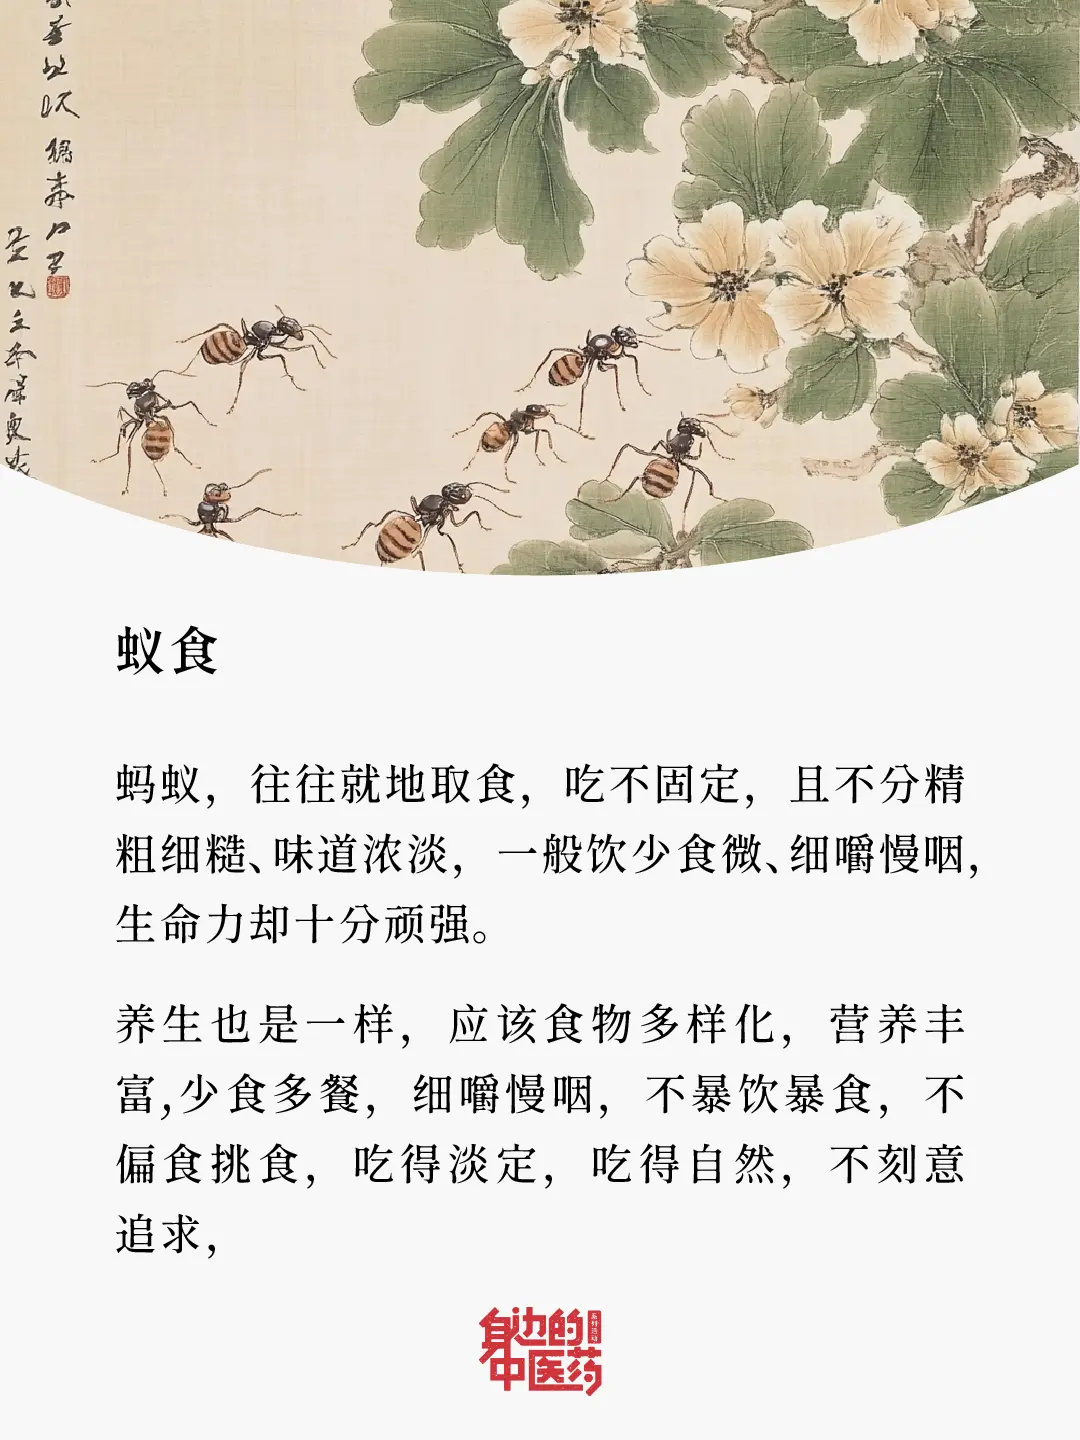 蚁食
蚂蚁，往往就地取食，吃不固定，且不分精
粗细糙、味道浓淡，一般饮少食微、细嚼慢咽，
生命力却十分顽强。
养生也是一样，应该食物多样化，营养丰
富,少食多餐，细嚼慢咽，不暴饮暴食，不
偏食挑食，吃得淡定，吃得自然，不刻意
追求，
身边的
系列活动
中医药